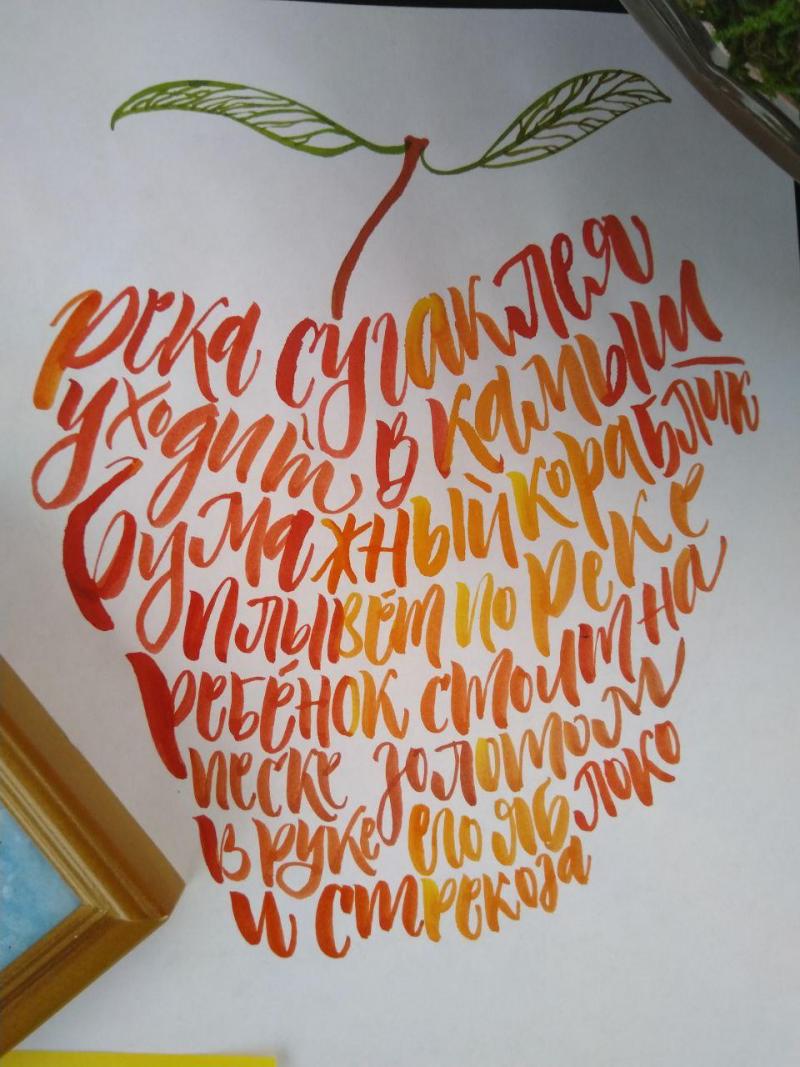 река сугаклея
уходит в камыш
бумажный кораблик
плывёт по реке
ребёнок стоит на
песке золотом
в руке его яблоко
и стрекоза